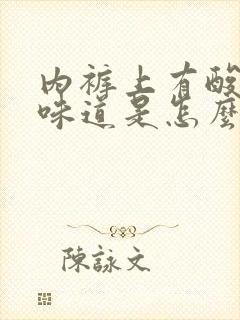 內褲上有酸
味道是怎麼
陳詠文